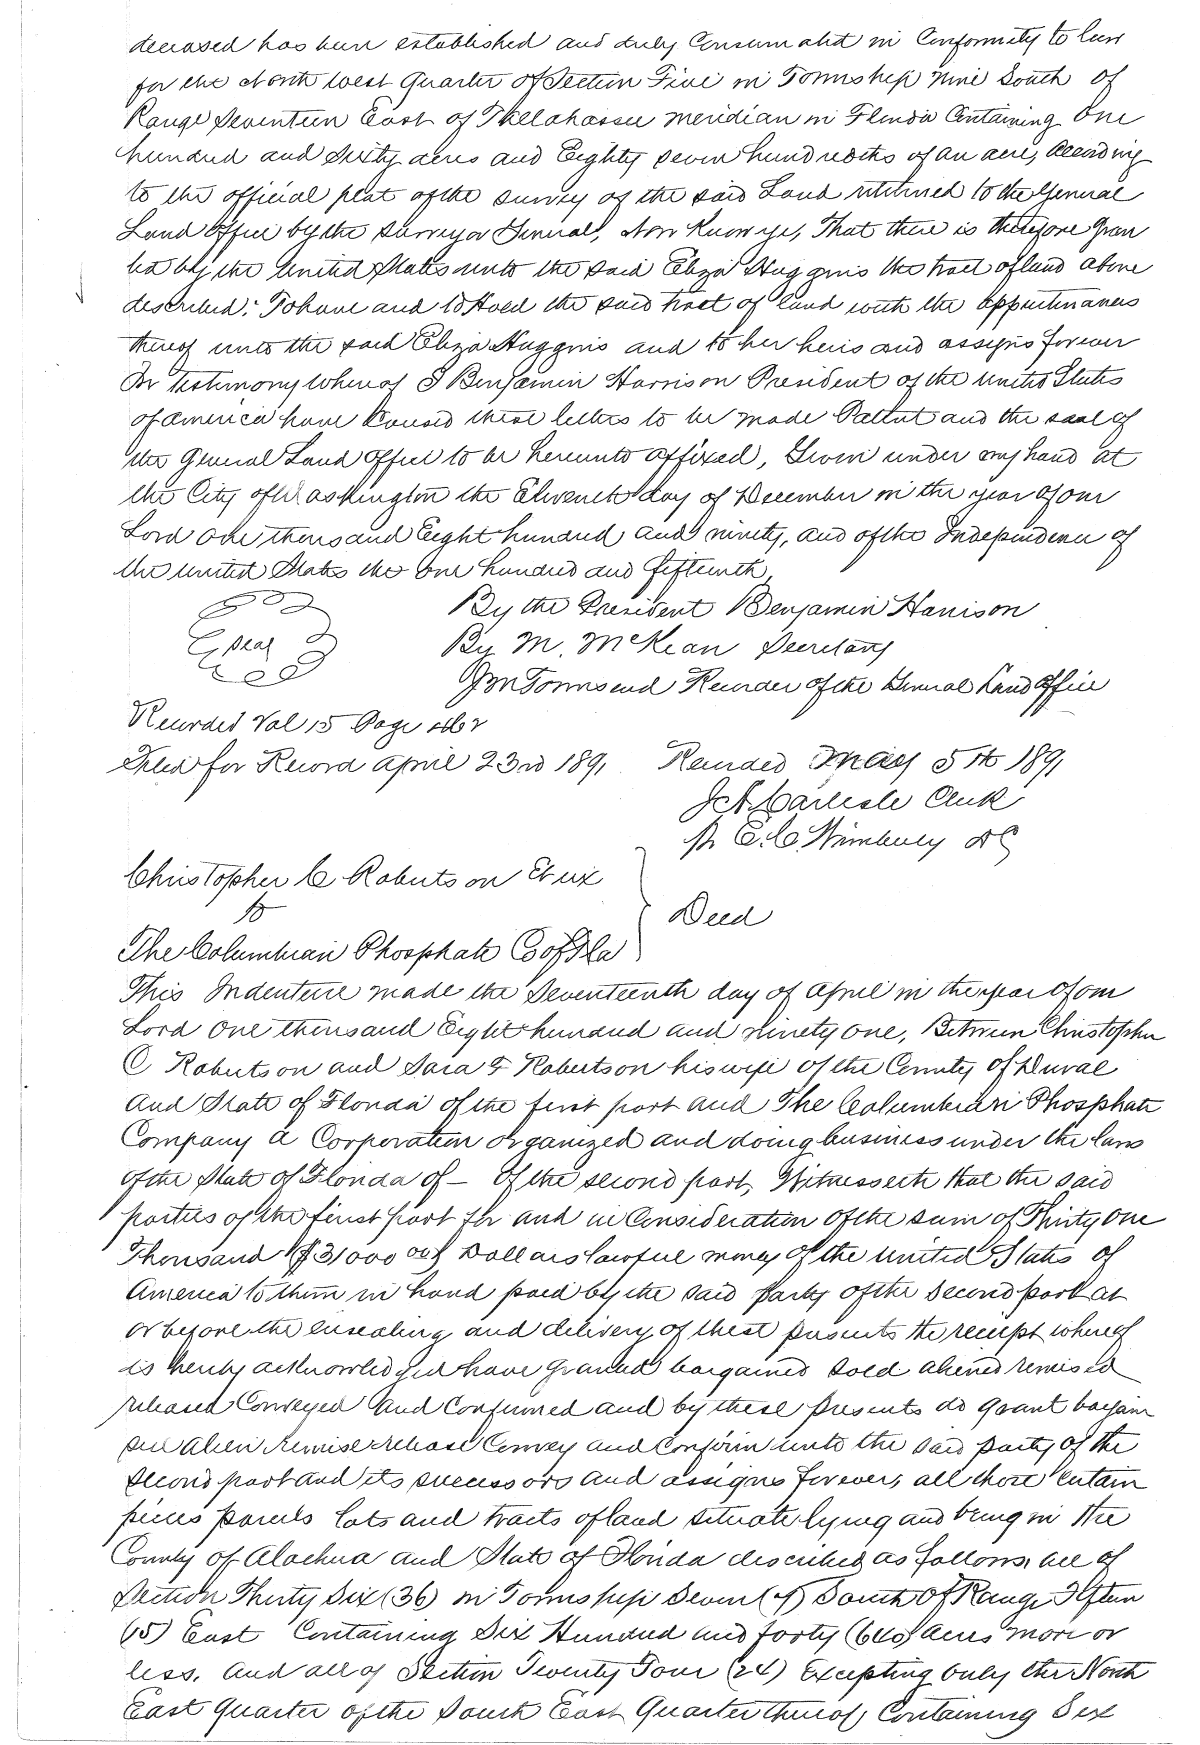 deceased has been established and duly Consumated in Conformity to law
for the North West Quarter of Section Five in Township nine South of
Range Seventeen East of Tallahassee meridian in Florida Containing One
hundred and Sixty acres and Eighty seven hundredths of an acre, according
to the official plat of the survey of the said Land returned to the General
Land Office by the Surveyor General, Now Know ye, That there is therefore gran
ted by the United States unto the said Eliza Huggins the tract of land above
described: To have and to Hold the said tract of land with the appurtenances
thereof unto the said Eliza Huggins and to her heirs and assigns forever
In Testimony Whereof I Benjamin Harrison President of the United States
of America have Caused these letters to be made Patent and the seal of
the General Land Office to be hereunto affixed, Given under my hand at
the City of Washington the Eleventh day of December in the year of our
Lord one thousand Eight hundred and ninety, and of the Independence of
the United States the one hundred and fifteenth
By the President Benjamin Harrison
Seal By M. McKean Secretary
J M Townsend Recorder of the General Land Office
Recorded Vol 15 Page 462
Filed for Record April 23rd 1891 Recorded May 5th 1891
J A Carlisle Clerk
pr E. C. Wimberly DC
Christopher C Robertson Et ux
to Deed
The Columbian Phosphate Co of Fla
This Indenture made the Seventeenth day of April in the year of our
Lord one thousand Eight hundred and ninety one, Between Christopher
C Robertson and Sara F Robertson his wife of the County of Duval
and State of Florida of the first part and The Columbian Phosphate
Company a Corporation organized and doing business under the laws
of the State of Florida of — Of the second part, Witnesseth that the said
parties of the first part for and in Consideration of the sum of Thirty One
Thousand ($31000 00) Dollars lawful money of the United States of
America to them in hand paid by the said party of the second part at
or before the ensealing and delivery of these presents the receipt whereof
is hereby acknowledged have granted bargained sold aliened remised
released Conveyed and Confirmed and by these presents do grant bargain
sell alien remise release Convey and Confirm unto the said party of the
second part and its successors and assigns forever, all those certain
pieces parcels lots and tracts of land situate lying and being in the
County of Alachua and State of Florida described as follows, all of
Section Thirty Six (36) in Township Seven (7) South of Range Fifteen
(15) East Containing Six Hundred and forty (640) acres more or
less. And all of Section Twenty Four (24) Excepting only the North
East Quarter of the South East Quarter thereof, Containing Six